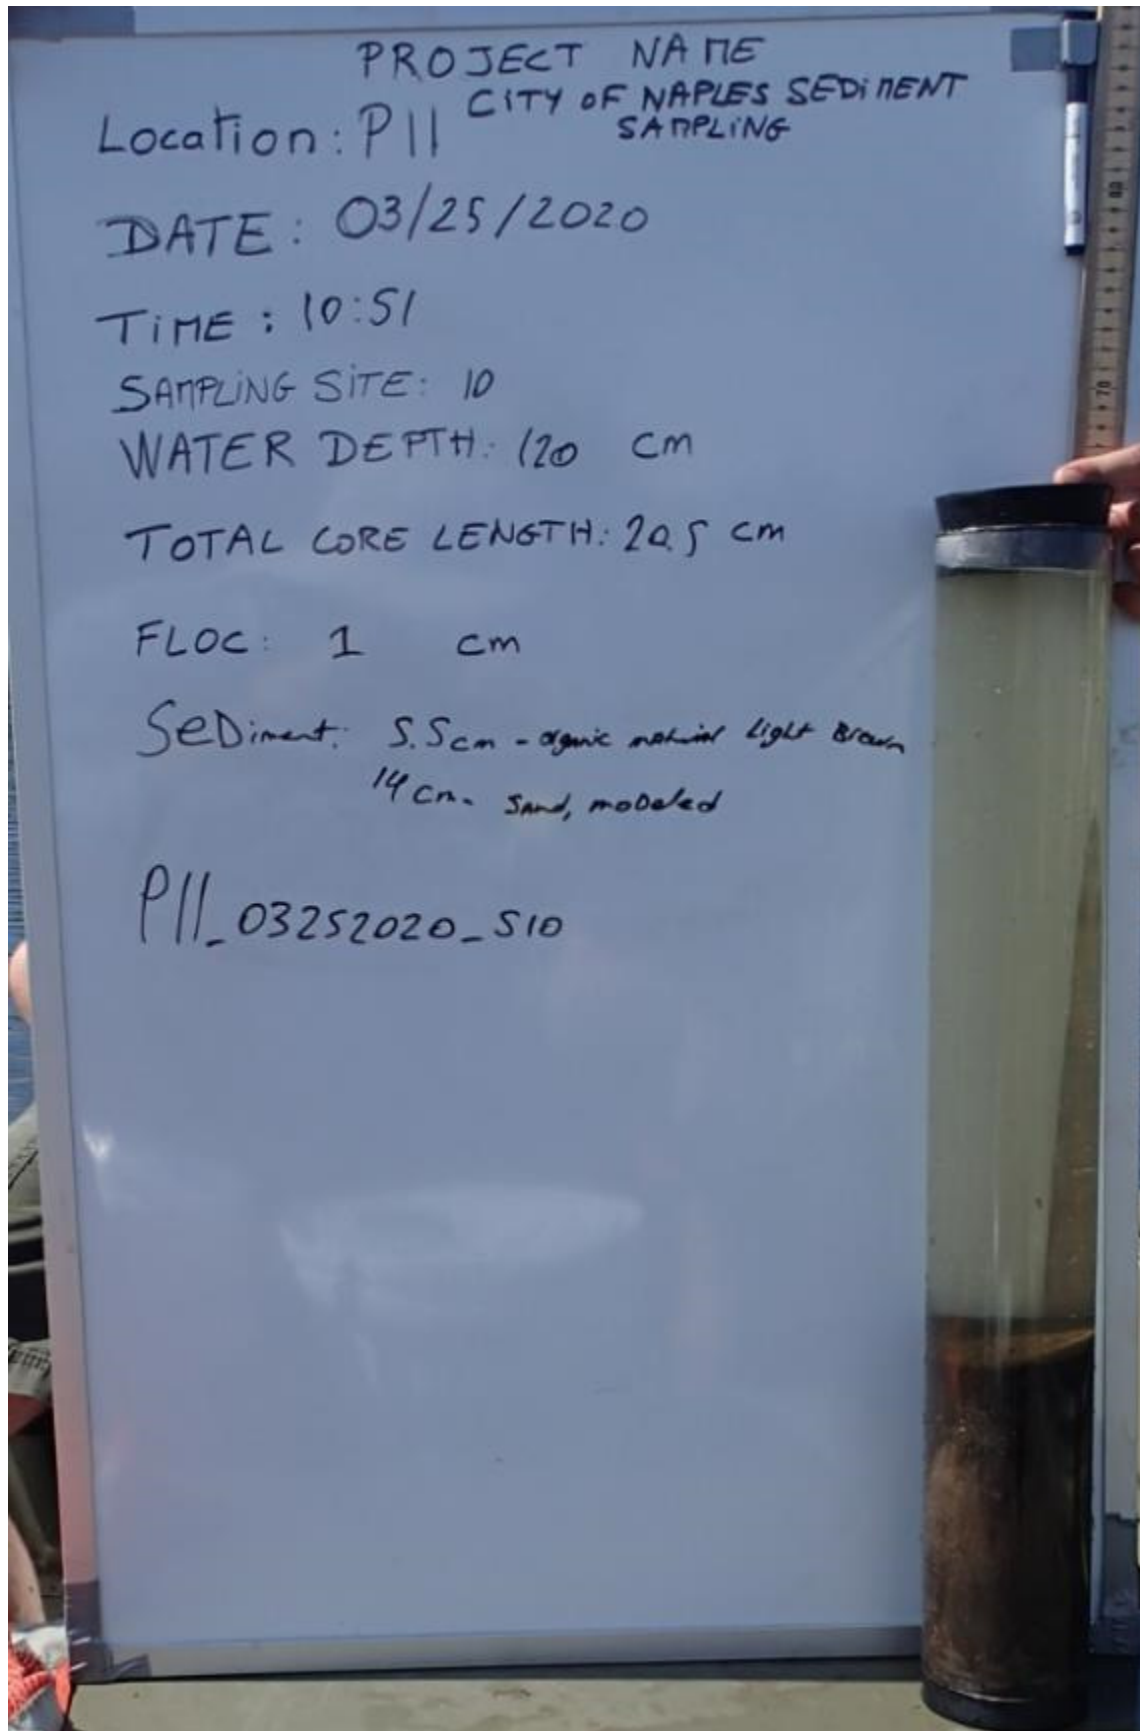 PROJECT NAME
CITY OF NAPLES SEDIMENT
SAMPLING
Location: P11
DATE: 03/25/2020
TIME: 10:51
SAMPLING SITE: 10
WATER DEPTH: 120 cm
TOTAL CORE LENGTH: 20.5 cm
FLOC: 1 cm
SeDiment: 5.5cm - organic material Light Brown
14cm- Sand, moDeled
P11_03252020_S10
60
70